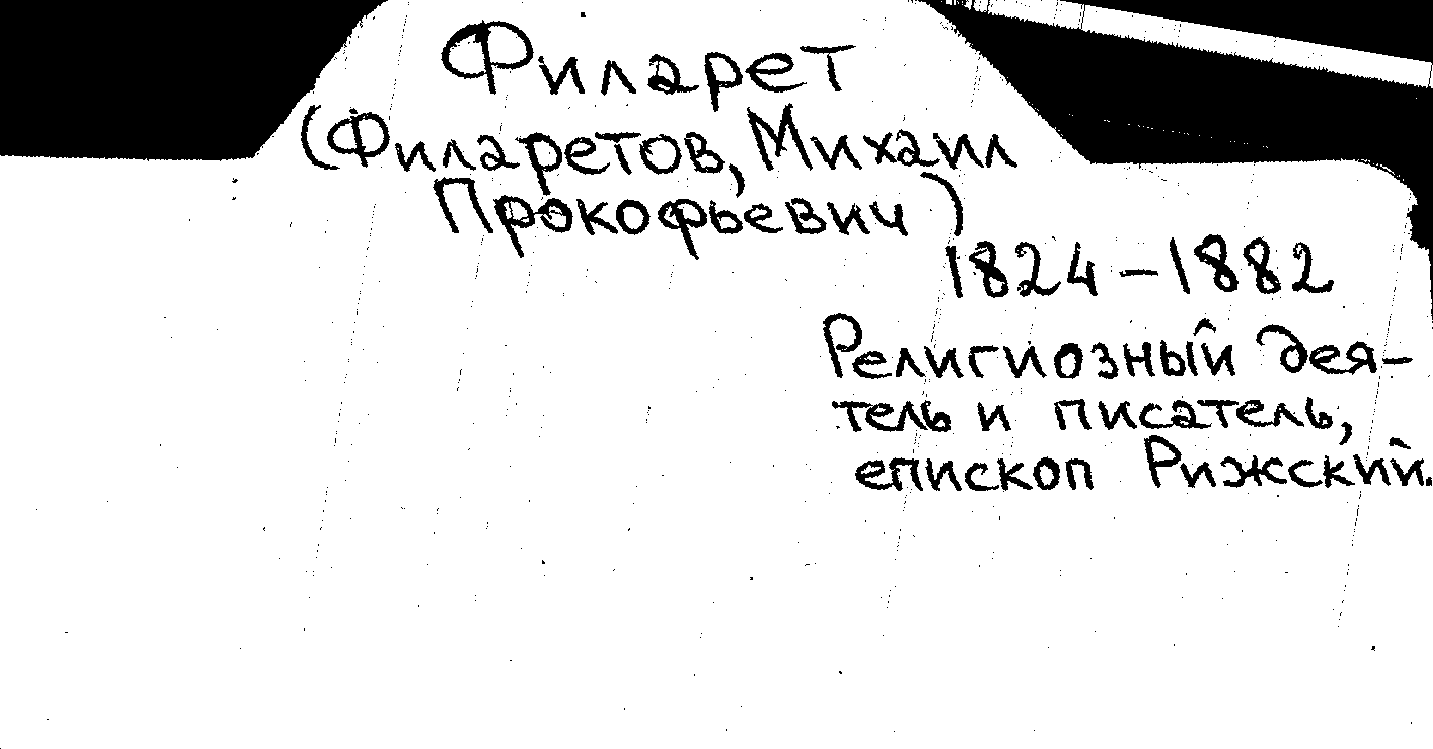 Филарет
(Филаретов, Михаил
Прокофьевич)
1824-1882
Религиозный дея-
тель и писатель,
епископ Рижский.